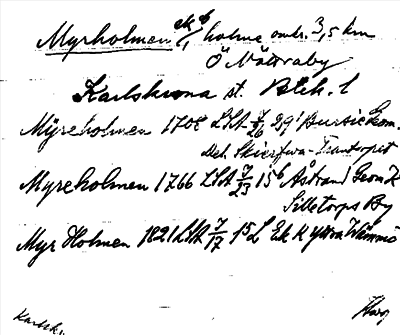 Myrholmen ek 6/1 holme omkr. 3,5 km
Ö Nättraby
Karlskrona st. Blek. l
Myreholmen 1708 LSA 7/26 29¹ Geom.
Det. Skierfwa-Trantorpit
Myreholmen 1766 LSA 7/23 15 b Åstrand Geom K
Silletorps By
Myr Holmen 1821 LSA 7/17 15 L Ek K Yttra Wämmö
Karlsk.